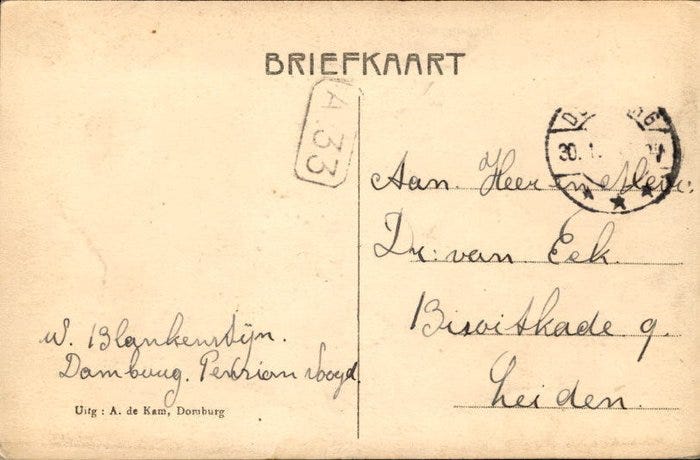 BRIEFKAART
A.33
30.1.
Aan. Heer en Mevr:
Dr: van Eck.
Bisoitkade 9.
Leiden.
W. Blankenstijn.
Domburg. Pension Looyd.
Uitg : A. de Kam, Domburg